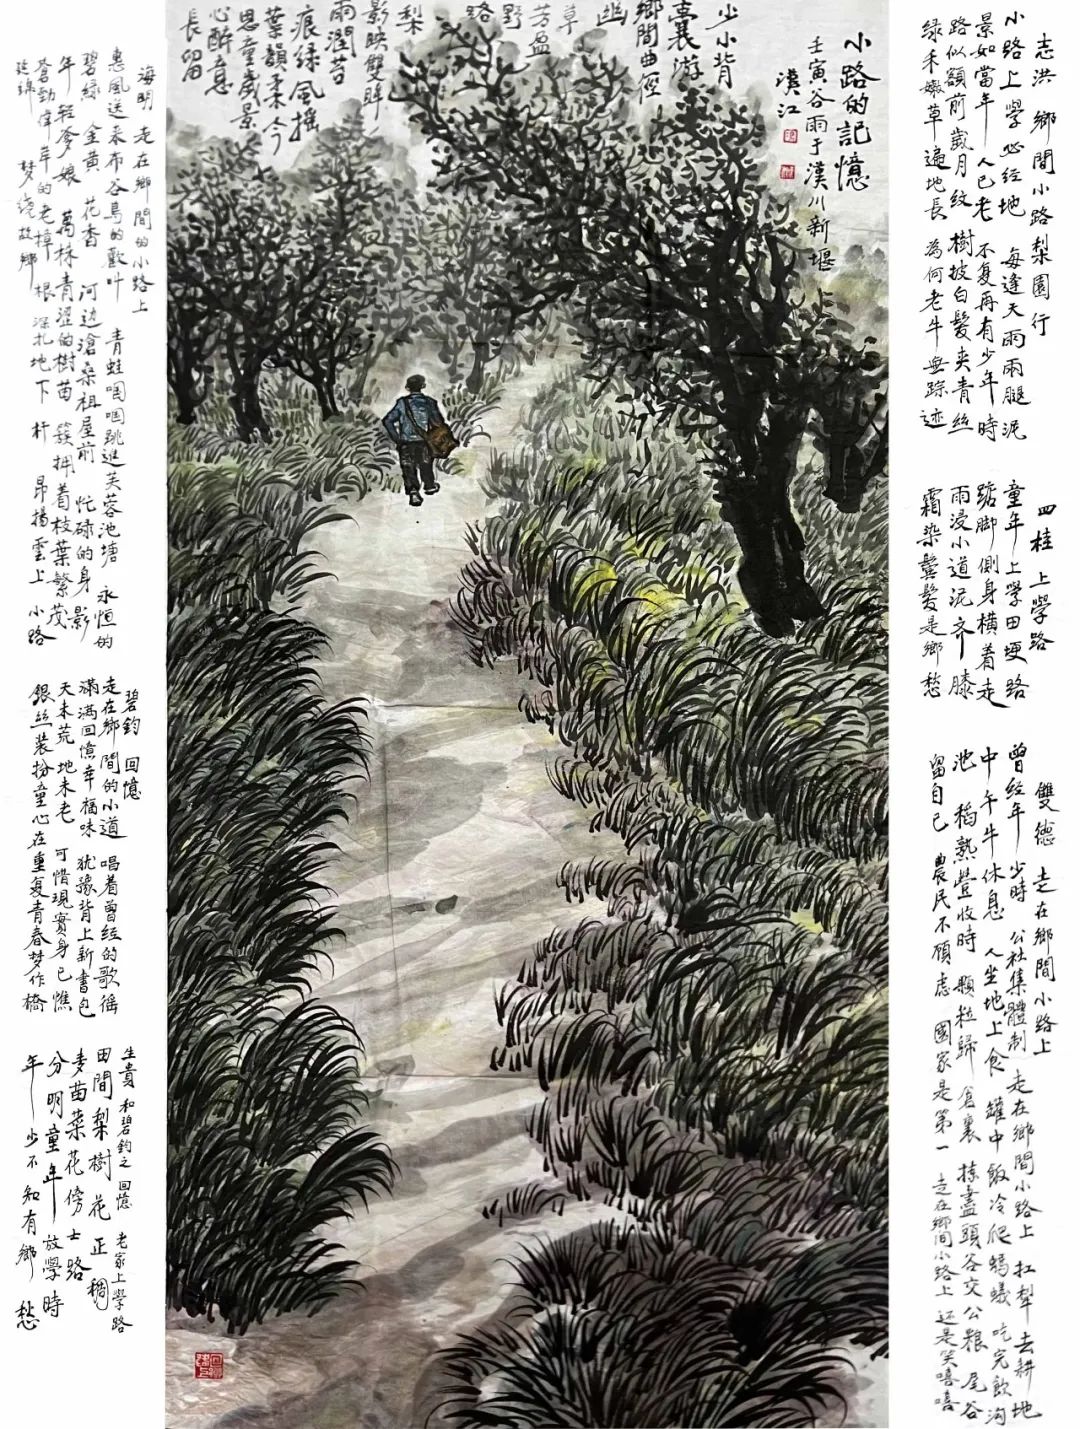 小路的記憶
壬寅谷雨于漢川新堰
漢江
少小背
囊游
鄉間曲徑
幽
草
芳盈
野
路
梨
影映雙眸
雨潤苔
痕綠風搖
葉韻柔今
思童歲景
心醉意
長留
志洪 鄉間小路梨園行
小路上學必經地 每逢天雨兩腿泥
景如當年人已老 不復再有少年時
路似額前歲月紋 樹披白髮夾青絲
绿禾嫩草遍地長 為何老牛無踪迹
四桂 上學路
童年上學田埂路
踮脚側身橫着走
雨浸小道泥齐膝
霜染鬓髮是鄉愁
雙德 走在鄉間小路上
曾经年少時 公社集體制 走在鄉間小路上 扛犁去耕地
中午牛休息 人坐地上食 罐中飯冷爬螞蟻 吃完飲沟
池 稻熟豐收時 顆粒歸倉裏 揀盡頭谷交公粮 尾谷
留自己 農民不顾虑 國家是第一 走在鄉間小路上 还是笑嘻嘻
海明 走在鄉間的小路上
惠風送来布谷鳥的歡叫 青蛙呱呱跳進芙蓉池塘 永恒的
碧綠 金黄 花香 河边滄桑祖屋前 忙碌的身影
年轻爹娘 萬株青澀的樹苗 簇拥着枝葉繁茂
蒼勁偉岸的老樟 根深扎地下 杆昂揚雲上 小路
延綿 梦绕故鄉
碧鈞 回憶
走在鄉間的小道 唱着曾经的歌谣
滿满回憶幸福味 犹豫背上新書包
天未荒地未老 可惜現實身已憔
銀丝装扮童心在 重复青春梦作橋
生貴 和碧鈞之回憶 老家上學路
田間梨樹花正稠
麦苗菜花傍士路
分明童年放學時
年少不知有鄉愁